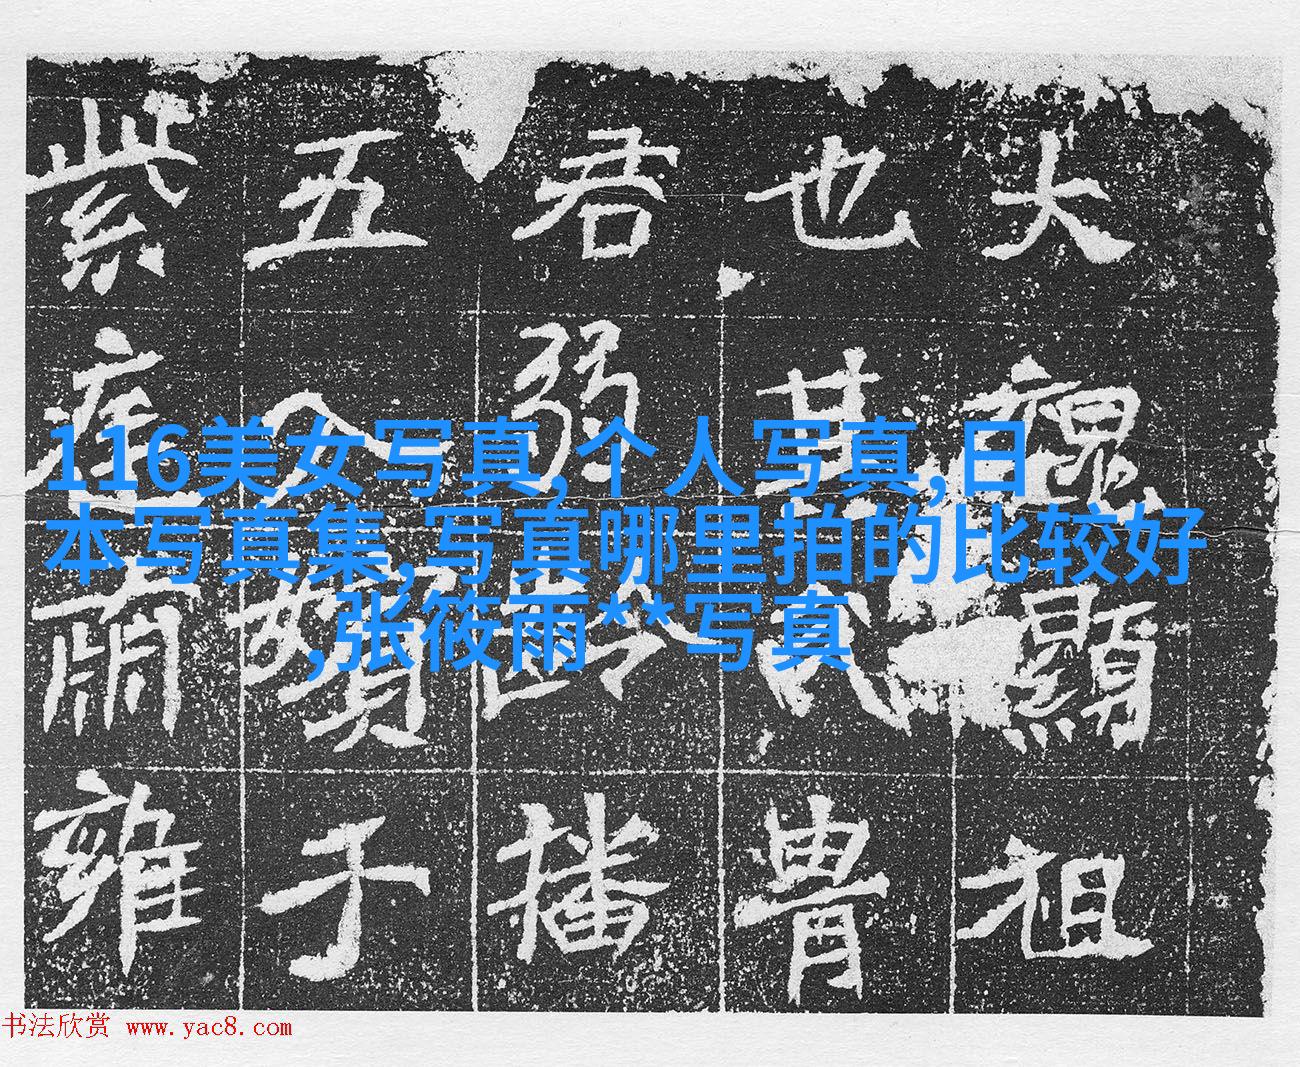 大魏顯祖
也其胄
君弱齡播
五入于
紫庭肅雍
116美女写真,个人写真,日
本写真集,写真哪里拍的比较好
,张筱雨**写真
书法欣赏 www.yac8.com